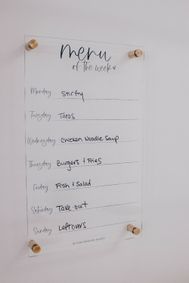 menu
of the week
Monday Stir fry
Tuesday Tacos
Wednesday Chicken Noodle Soup
Thursday Burgers & Fries
Friday Fish & Salad
Saturday Take out
Sunday Leftovers